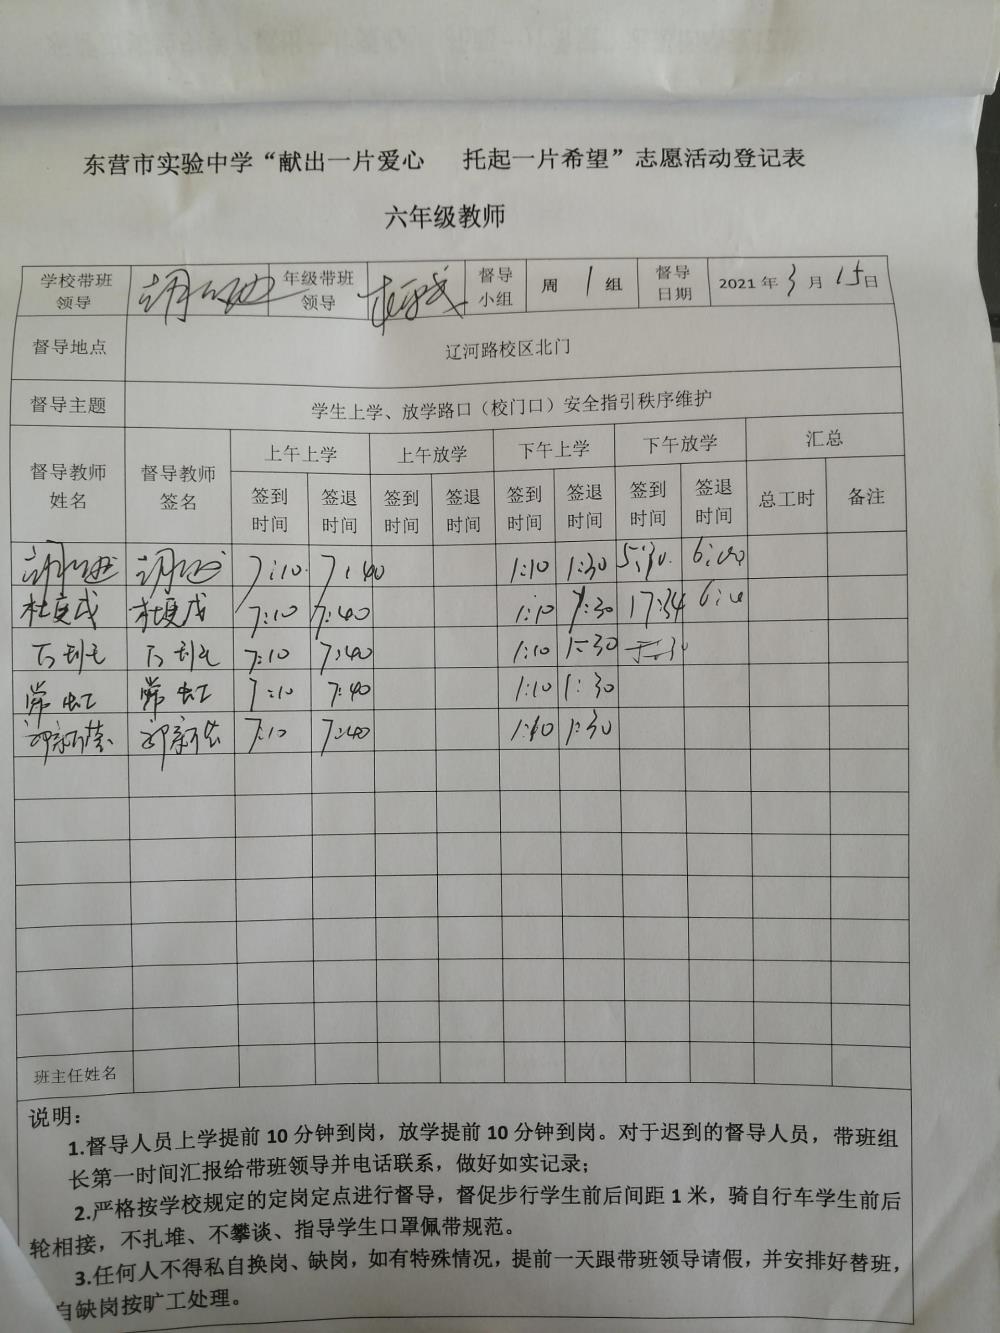 东营市实验中学“献出一片爱心 托起一片希望”志愿活动登记表
六年级教师
学校带班领导 年级带班领导 督导小组 周 1 组 督导日期 2021 年 3 月 15 日
督导地点 辽河路校区北门
督导主题 学生上学、放学路口（校门口）安全指引秩序维护
督导教师姓名 督导教师签名 上午上学 上午放学 下午上学 下午放学 汇总
签到时间 签退时间 签到时间 签退时间 签到时间 签退时间 签到时间 签退时间 总工时 备注
7:10 7:40 1:10 1:30 5:30 6:00
7:10 7:40 1:10 1:30 17:34
7:10 7:40 1:10 1:30
常虹 常虹 7:10 7:40 1:10 1:30
7:10 7:40 1:10 1:30
班主任姓名
说明：
1.督导人员上学提前 10 分钟到岗，放学提前 10 分钟到岗。对于迟到的督导人员，带班组
长第一时间汇报给带班领导并电话联系，做好如实记录；
2.严格按学校规定的定岗定点进行督导，督促步行学生前后间距 1 米，骑自行车学生前后
轮相接，不扎堆、不攀谈、指导学生口罩佩带规范。
3.任何人不得私自换岗、缺岗，如有特殊情况，提前一天跟带班领导请假，并安排好替班，
自缺岗按旷工处理。